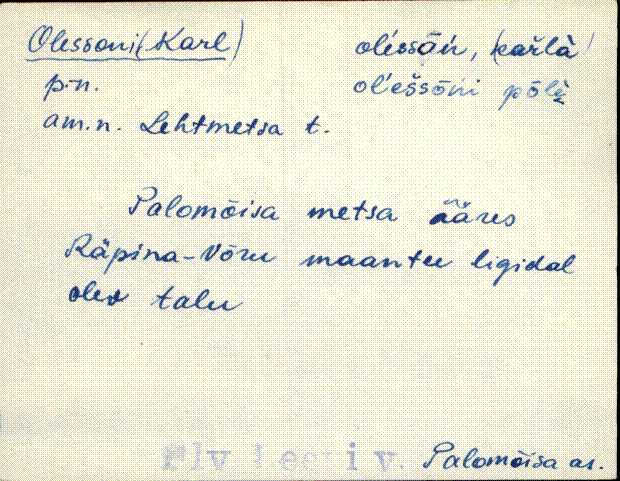 Olessoni (Karl) oléssōń, (kařlà)
p.-n. ol'eššōni põl̀è
am.n. Lehtmetsa t.
Palomõisa metsa ääres
Räpina-Võru maantee ligidal
olev talu
Palomõisa as.